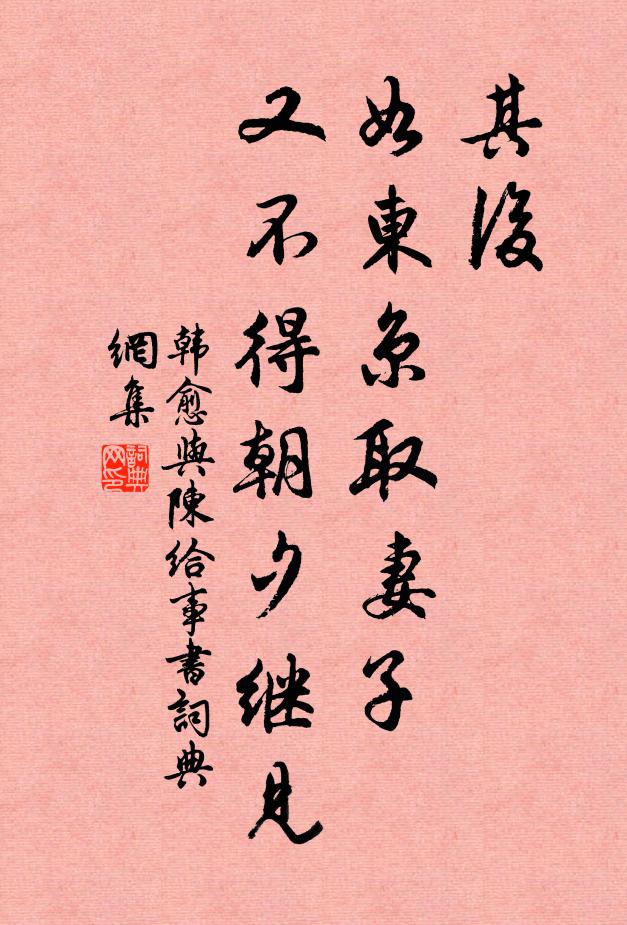 其後
如東京取妻子
又不得朝夕继見
韩愈與陳给事書詞典
網集
詞典
网印